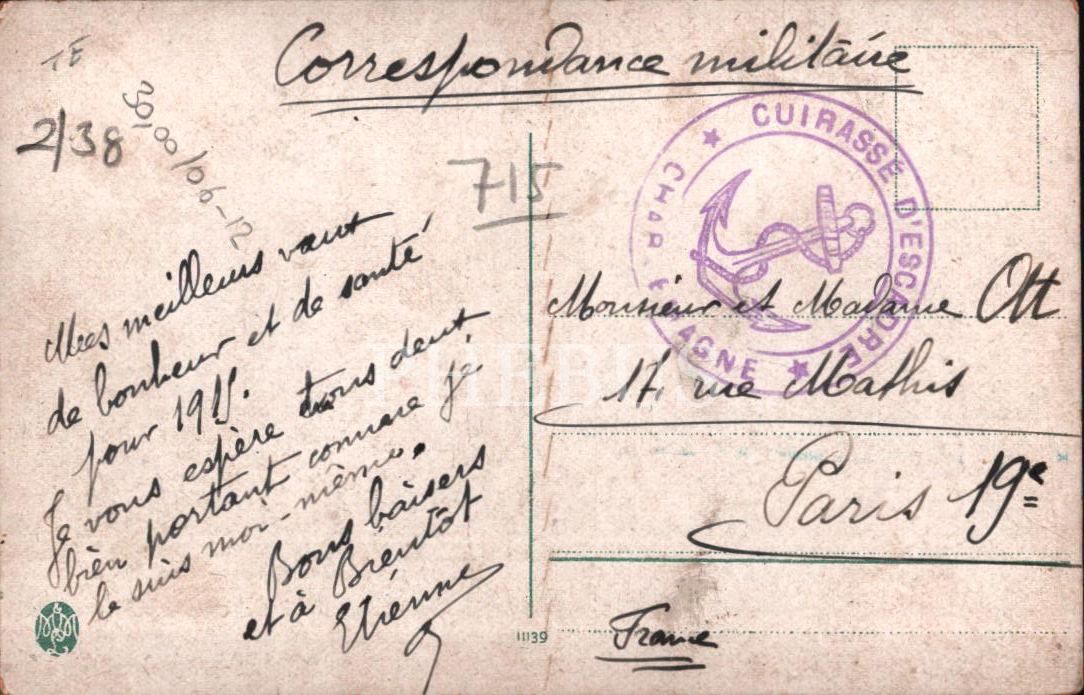 Correspondance militaire
TE
2/38
30,00/06-12
715
CUIRASSÉ D'ESCADRE
CHAR EMAGNE
Mes meilleurs vœux
de bonheur et de santé
pour 1915.
Je vous espère tous deux
bien portant comme je
le suis moi-même.
Bons baisers
et à Bientôt
Etienne
Monsieur et Madame Ott
17, rue Mathis
Paris 19e
France
11139
PHEBUS